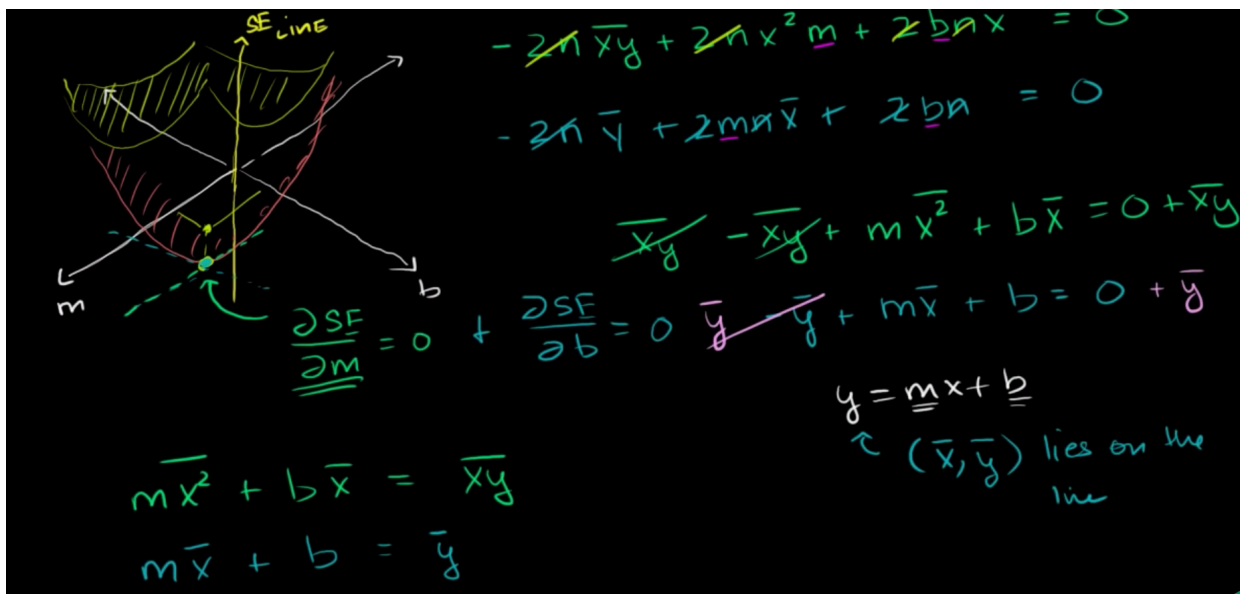 SE LINE
m
b
- 2n x̅y̅ + 2n x² m + 2bn x = 0
- 2n y̅ + 2mn x̅ + 2bn = 0
x̅y̅ - x̅y̅ + m x̅²̅ + b x̅ = 0 + x̅y̅
∂SE/∂m = 0 + ∂SE/∂b = 0
y̅ - y̅ + m x̅ + b = 0 + y̅
y = mx + b
(x̅, y̅) lies on the
line
m x̅²̅ + b x̅ = x̅y̅
m x̅ + b = y̅